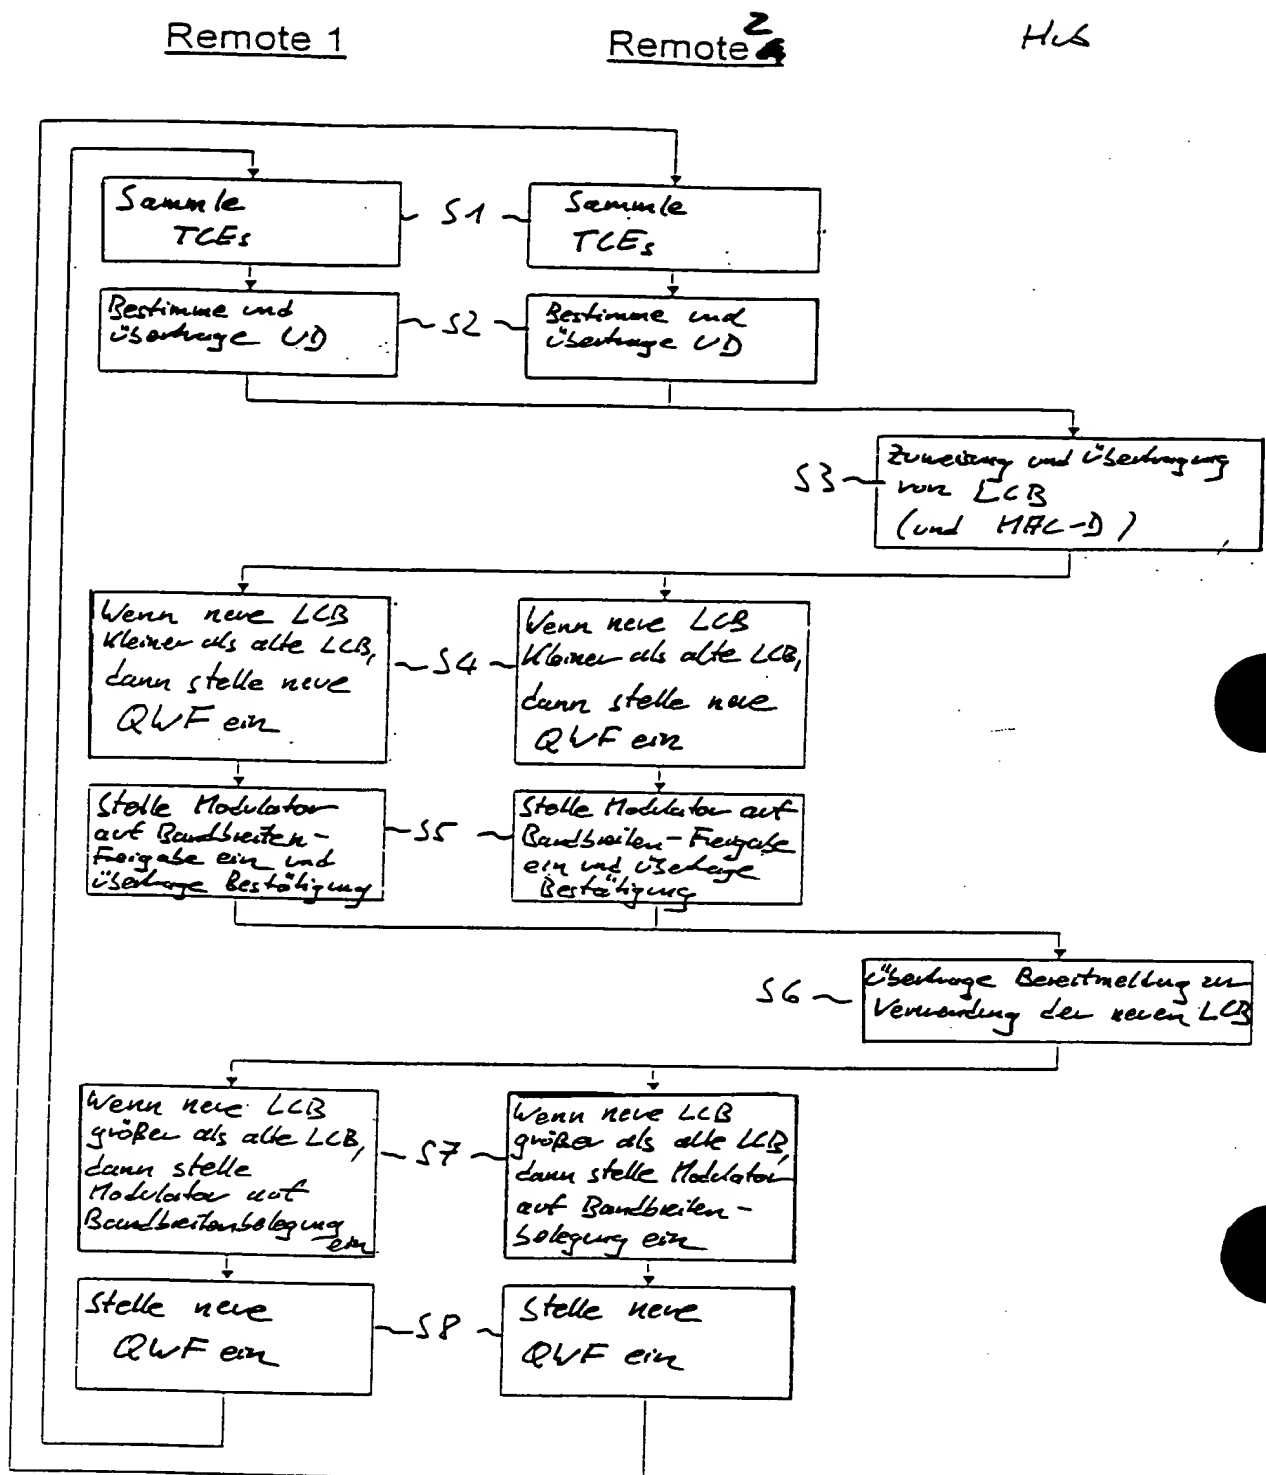 Remote 1
Remote 2
Hub
Sammle
TCEs
S1
Sammle
TCEs
Bestimme und
übertrage UD
S2
Bestimme und
übertrage UD
S3
Zuweisung und Übertragung
von LCB
(und MAC-D)
Wenn neue LCB
kleiner als alte LCB,
dann stelle neue
QWF ein
S4
Wenn neue LCB
kleiner als alte LCB,
dann stelle neue
QWF ein
Stelle Modulator
auf Bandbreiten-
Freigabe ein und
übertrage Bestätigung
S5
Stelle Modulator auf
Bandbreiten-Freigabe
ein und übertrage
Bestätigung
S6
Übertrage Bereitmeldung zur
Verwendung der neuen LCB
Wenn neue LCB
größer als alte LCB,
dann stelle
Modulator auf
Bandbreitenbelegung
ein
S7
Wenn neue LCB
größer als alte LCB,
dann stelle Modulator
auf Bandbreiten-
belegung ein
Stelle neue
QWF ein
S8
Stelle neue
QWF ein